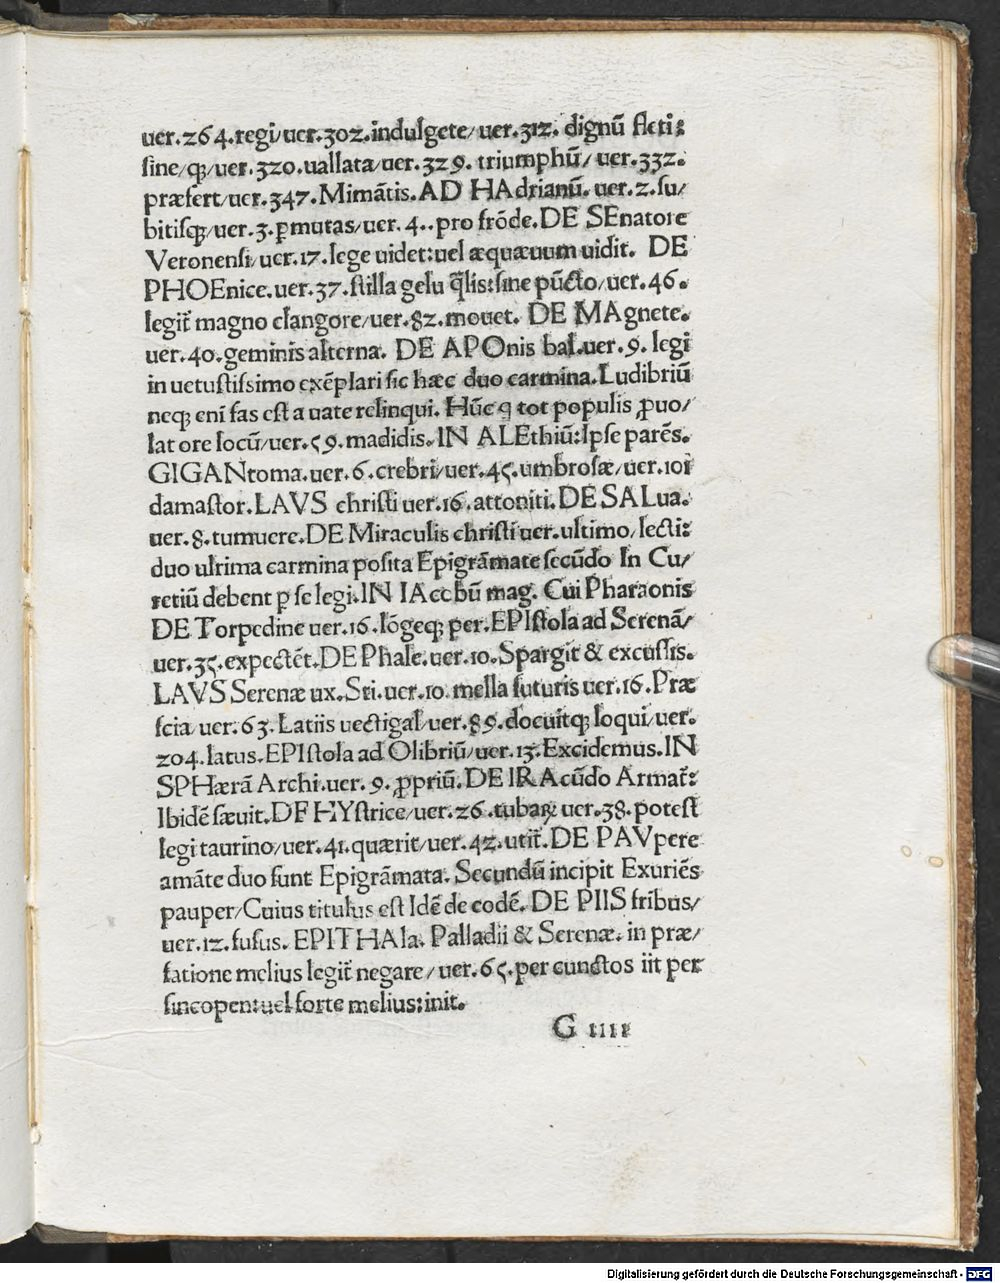 uer.264.regi/uer.302.indulgete/uer.312. dignũ fleti:
sine/q;/uer.320.uallata/uer.329. triumphũ/ uer.332.
præfert/uer.347.Mimãtis.AD HAdrianũ. uer.2.su/
bitisq;/uer.3.ꝑmutas/uer. 4..pro frõde.DE SEnatore
Veronensi/uer.17.lege uidet:uel æquæuum uidit. DE
PHOEnice.uer.37.stilla gelu q̃lis:sine pũcto/uer.46.
legit̃ magno clangore/uer.82.mouet. DE MAgnete.
uer.40.geminis alterna. DE APOnis bal.uer.9. legi
in uetustissimo exẽplari sic hæc duo carmina.Ludibriũ
neq; eni fas est a uate relinqui. Hũc q tot populis ꝓuo/
lat ore locũ/uer.59.madidis.IN ALEthiũ:Ipse parẽs.
GIGANtoma.uer.6.crebri/uer.45.umbrosæ/uer.101
damastor.LAVS christi uer.16.attoniti.DE SALua.
uer.8.tumuere.DE Miraculis christi uer.ultimo/lecti:
duo ultima carmina posita Epigrãmate secũdo In Cu/
retiũ debent p se legi.IN IAccbũ mag. Cui Pharaonis
DE Torpedine uer.16.lõgeq; per.EPIstola ad Serenã/
uer.35.expectẽt.DE Phale.uer.10.Spargit & excussis.
LAVS Serenæ ux.Sti.uer.10.mella futuris uer.16.Præ
scia uer.63.Latiis uectigal uer.89.docuitq; loqui/uer.
204.latus.EPIstola ad Olibriũ/uer.13.Excidemus.IN
SPHærã Archi.uer.9.ꝓpriũ.DE IRAcũdo Armat̃:
Ibidẽ sæuit.DE HYstrice/uer.26.tubaꝝ uer.38.potest
legi taurino/uer.41.quærit/uer.42.utit̃.DE PAVpere
amãte duo sunt Epigrãmata. Secundũ incipit Exuriẽs
pauper/Cuius titulus est Idẽ de eodẽ.DE PIIS fribus/
uer.12.fusus.EPITHAla. Palladii & Serenæ. in præ/
fatione melius legit̃ negare/uer.65.per cunctos iit per
sincopen:uel forte melius:init.
G iiii
Digitalisierung gefördert durch die Deutsche Forschungsgemeinschaft - DFG